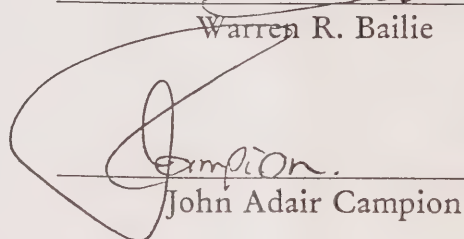 Warren R. Bailie
Campion.
John Adair Campion